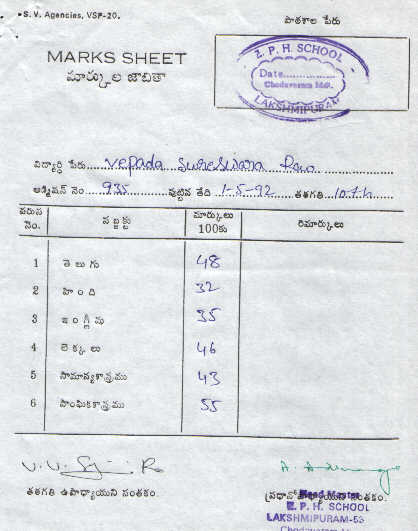 S. V. Agencies, VSP-20.
పాఠశాల పేరు
MARKS SHEET
మార్కుల జాబితా
Z. P. H. SCHOOL
Date
Chodavaram Md.
LAKSHMIPURAM
విద్యార్థి పేరు Vepada Sureswara Rao
అడ్మిషన్ నెం. 935 పుట్టిన తేది 1-5-92 తరగతి 10th
వరుస నెం. సబ్జక్టు మార్కులు 100కు రిమార్కులు
1 తెలుగు 48
2 హింది 32
3 ఇంగ్లీషు 35
4 లెక్కలు 46
5 సామాన్యశాస్త్రము 43
6 సాంఘికశాస్త్రము 55
తరగతి ఉపాధ్యాయుని సంతకం.
ప్రధానోపాధ్యాయుని సంతకం.
Head Master
Z. P. H. SCHOOL
LAKSHMIPURAM-53